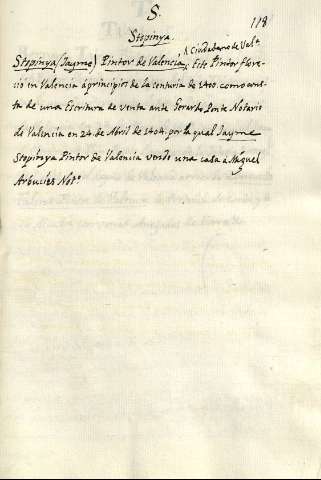 S.
118
Stopinya.
^ Ciudadano de Val.ª
Stopinya (Jayme) Pintor de Valencia ^. Este Pintor flore-
ció en Valencia á principios de la centuria de 1400. como cons-
ta de una Escritura de venta ante Gerardo Ponte Notario
de Valencia en 24. de Abril de 1404. por la qual Jayme
Stopinya Pintor de Valencia vende una casa á Miguel
Arbucies Not.º